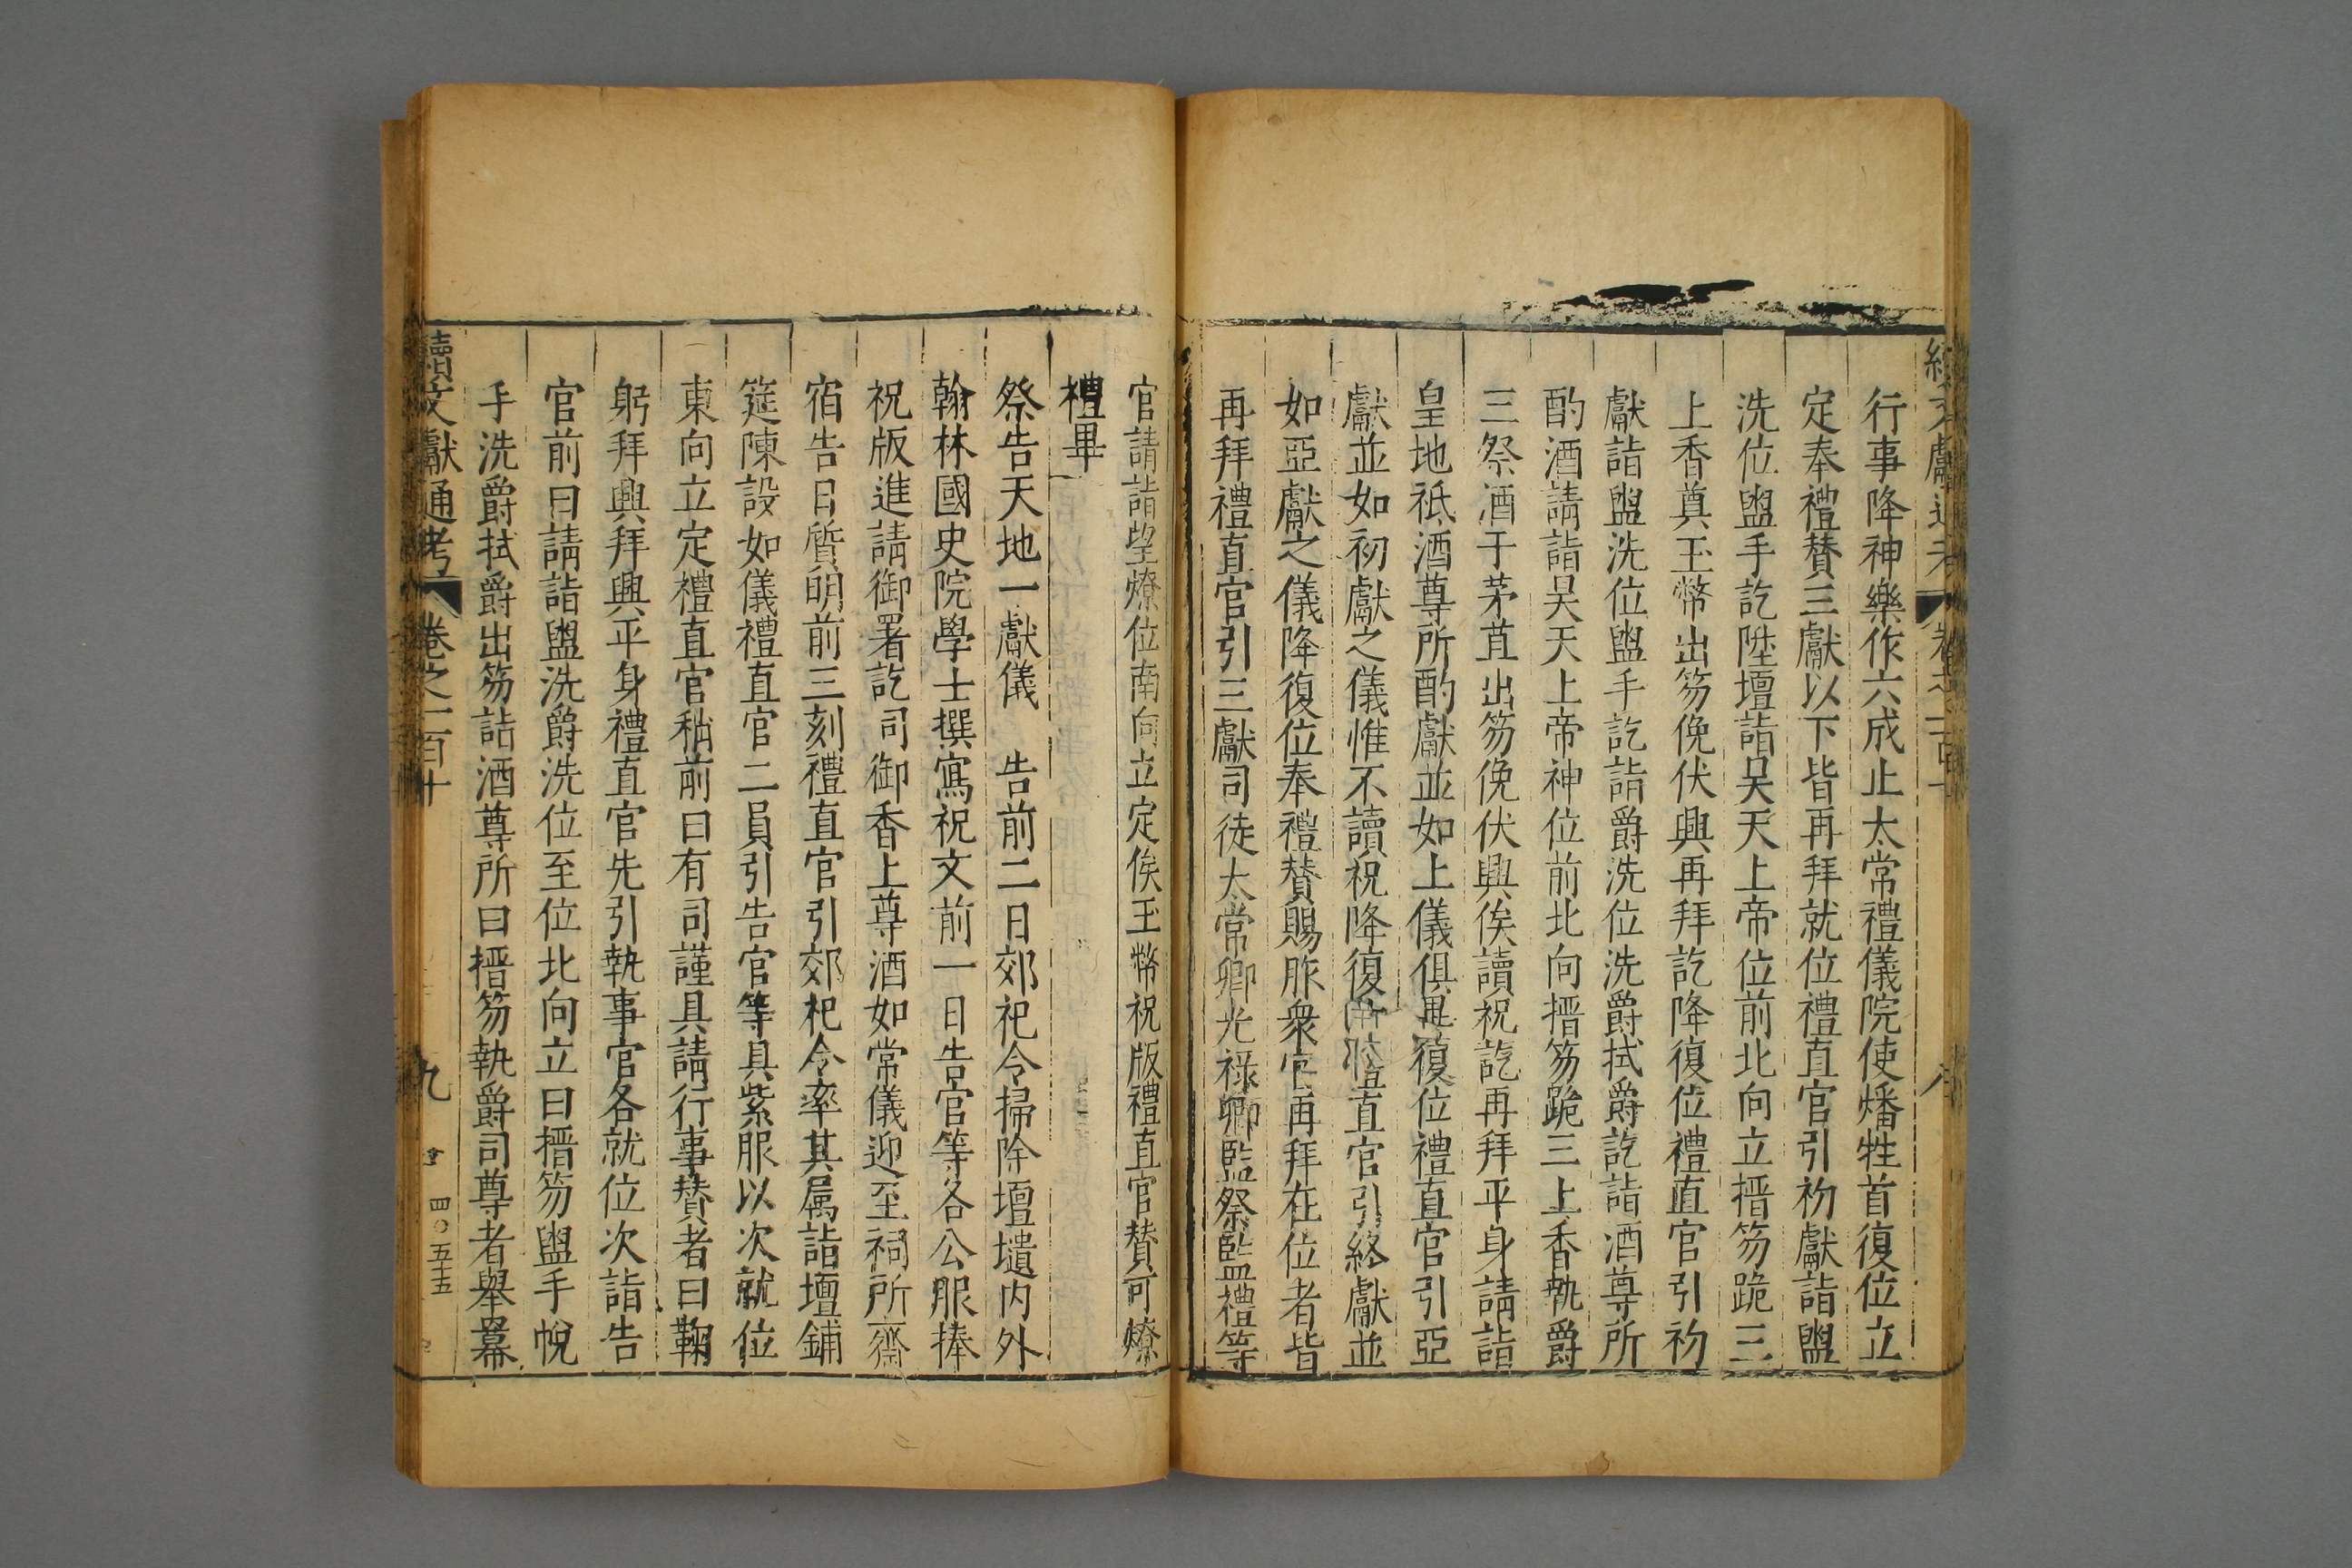 續文獻通考 卷之一百十 八
行事降神樂作六成止太常禮儀院使燔牲首復位立
定奉禮贊三獻以下皆再拜就位禮直官引初獻詣盥
洗位盥手訖陞壇詣昊天上帝位前北向立搢笏跪三
上香奠玉幣出笏俛伏興再拜訖降復位禮直官引初
獻詣盥洗位盥手訖詣爵洗位洗爵拭爵訖詣酒尊所
酌酒請詣昊天上帝神位前北向搢笏跪三上香執爵
三祭酒于茅苴出笏俛伏興俟讀祝訖再拜平身請詣
皇地祗酒尊所酌獻並如上儀俱畢復位禮直官引亞
獻並如初獻之儀惟不讀祝降復位禮直官引終獻並
如亞獻之儀降復位奉禮贊賜胙衆官再拜在位者皆
再拜禮直官引三獻司徒太常卿光祿卿監祭監禮等
官請詣望燎位南向立定俟玉幣祝版禮直官贊可燎
禮畢
祭告天地一獻儀 告前二日郊祀令掃除壇壝内外
翰林國史院學士撰寫祝文前一日告官等各公服捧
祝版進請御署訖司御香上尊酒如常儀迎至祠所齋
宿告日質明前三刻禮直官引郊祀令率其属詣壇鋪
筵陳設如儀禮直官二員引告官等具紫服以次就位
東向立定禮直官稍前曰有司謹具請行事贊者曰鞠
躬拜興拜興平身禮直官先引執事官各就位次詣告
官前曰請詣盥洗爵洗位至位北向立曰搢笏盥手帨
手洗爵拭爵出笏詣酒尊所曰搢笏執爵司尊者舉冪
續文獻通考 卷之一百十 九 四〇五十五